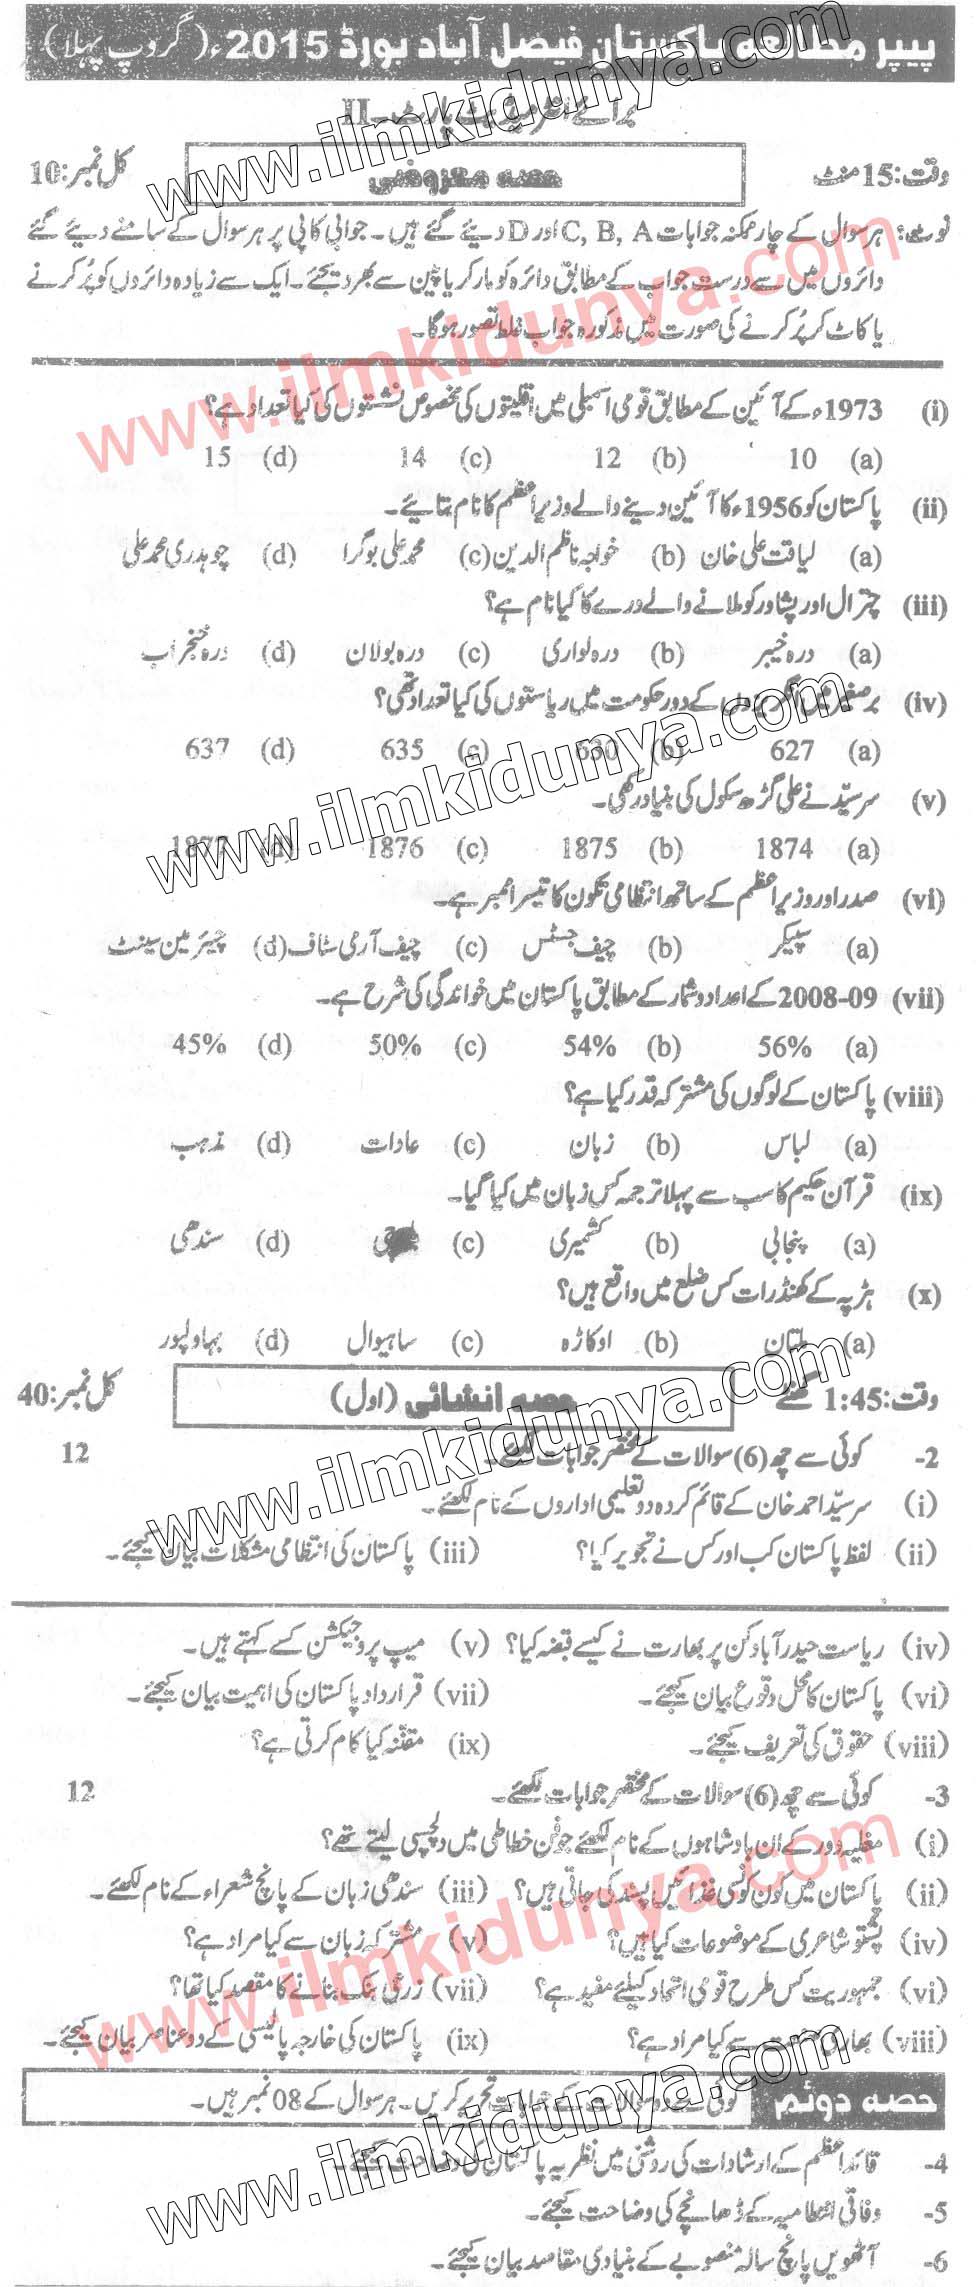 پیپر مطالعہ پاکستان فیصل آباد بورڈ 2015ء (گروپ پہلا)
برائے انٹرمیڈیٹ پارٹ-II
وقت: 15 منٹ حصہ معروضی کل نمبر: 10
نوٹ: ہر سوال کے چار ممکنہ جوابات C, B, A اور D دیئے گئے ہیں۔ جوابی کاپی پر ہر سوال کے سامنے دیئے گئے
دائروں میں سے درست جواب کے مطابق دائرہ کو مارکر یا پین سے بھر دیجئے۔ ایک سے زیادہ دائروں کو پُر کرنے
یا کاٹ کر پُر کرنے کی صورت میں مذکورہ جواب غلط تصور ہوگا۔
(i) 1973ء کے آئین کے مطابق قومی اسمبلی میں اقلیتوں کی مخصوص نشستوں کی کیا تعداد ہے؟
(a) 10 (b) 12 (c) 14 (d) 15
(ii) پاکستان کو 1956ء کا آئین دینے والے وزیراعظم کا نام بتائیے۔
(a) لیاقت علی خان (b) خواجہ ناظم الدین (c) محمد علی بوگرا (d) چوہدری محمد علی
(iii) چترال اور پشاور کو ملانے والے درے کا کیا نام ہے؟
(a) درہ خیبر (b) درہ لواری (c) درہ بولان (d) درہ خنجراب
(iv) برصغیر میں انگریزوں کے دور حکومت میں ریاستوں کی کیا تعداد تھی؟
(a) 627 (b) 630 (c) 635 (d) 637
(v) سرسیّد نے علی گڑھ سکول کی بنیاد رکھی۔
(a) 1874 (b) 1875 (c) 1876 (d) 1877
(vi) صدر اور وزیراعظم کے ساتھ انتظامی تکون کا تیسرا ممبر ہے۔
(a) سپیکر (b) چیف جسٹس (c) چیف آرمی سٹاف (d) چیئرمین سینٹ
(vii) 2008-09 کے اعداد و شمار کے مطابق پاکستان میں خواندگی کی شرح ہے۔
(a) 56% (b) 54% (c) 50% (d) 45%
(viii) پاکستان کے لوگوں کی مشترکہ قدر کیا ہے؟
(a) لباس (b) زبان (c) عادات (d) مذہب
(ix) قرآن حکیم کا سب سے پہلا ترجمہ کس زبان میں کیا گیا۔
(a) پنجابی (b) کشمیری (c) (d) سندھی
(x) ہڑپہ کے کھنڈرات کس ضلع میں واقع ہیں؟
(a) ملتان (b) اوکاڑہ (c) ساہیوال (d) بہاولپور
وقت: 1:45 گھنٹے حصہ انشائی (اول) کل نمبر: 40
2- کوئی سے چھ (6) سوالات کے مختصر جوابات لکھئے۔ 12
(i) سرسیّد احمد خان کے قائم کردہ دو تعلیمی اداروں کے نام لکھئے۔
(ii) لفظ پاکستان کب اور کس نے تجویز کیا؟ (iii) پاکستان کی انتظامی مشکلات بیان کیجئے۔
(iv) ریاست حیدرآباد دکن پر بھارت نے کیسے قبضہ کیا؟ (v) میپ پروجیکشن کسے کہتے ہیں۔
(vi) پاکستان کا محل وقوع بیان کیجئے۔ (vii) قرارداد پاکستان کی اہمیت بیان کیجئے۔
(viii) حقوق کی تعریف کیجئے۔ (ix) مقننہ کیا کام کرتی ہے؟
3- کوئی سے چھ (6) سوالات کے مختصر جوابات لکھئے۔ 12
(i) مغلیہ دور کے ان بادشاہوں کے نام لکھئے جو فن خطاطی میں دلچسپی لیتے تھے؟
(ii) پاکستان میں کون کونسی غذائیں پسند کی جاتی ہیں؟ (iii) سندھی زبان کے پانچ شعراء کے نام لکھئے۔
(iv) پشتو شاعری کے موضوعات کیا ہیں؟ (v) مشترکہ زبان سے کیا مراد ہے؟
(vi) جمہوریت کس طرح قومی اتحاد کیلئے مفید ہے؟ (vii) زرعی بنک بنانے کا مقصد کیا تھا؟
(viii) بھاری صنعت سے کیا مراد ہے؟ (ix) پاکستان کی خارجہ پالیسی کے دو عناصر بیان کیجئے۔
حصہ دوئم کوئی سے دو سوالات کے جوابات تحریر کریں۔ ہر سوال کے 08 نمبر ہیں۔
4- قائداعظم کے ارشادات کی روشنی میں نظریہ پاکستان کی وضاحت کیجئے۔
5- وفاقی انتظامیہ کے ڈھانچے کی وضاحت کیجئے۔
6- آٹھویں پانچ سالہ منصوبے کے بنیادی مقاصد بیان کیجئے۔
www.ilmkidunya.com
www.ilmkidunya.com
www.ilmkidunya.com
www.ilmkidunya.com
www.ilmkidunya.com
www.ilmkidunya.com